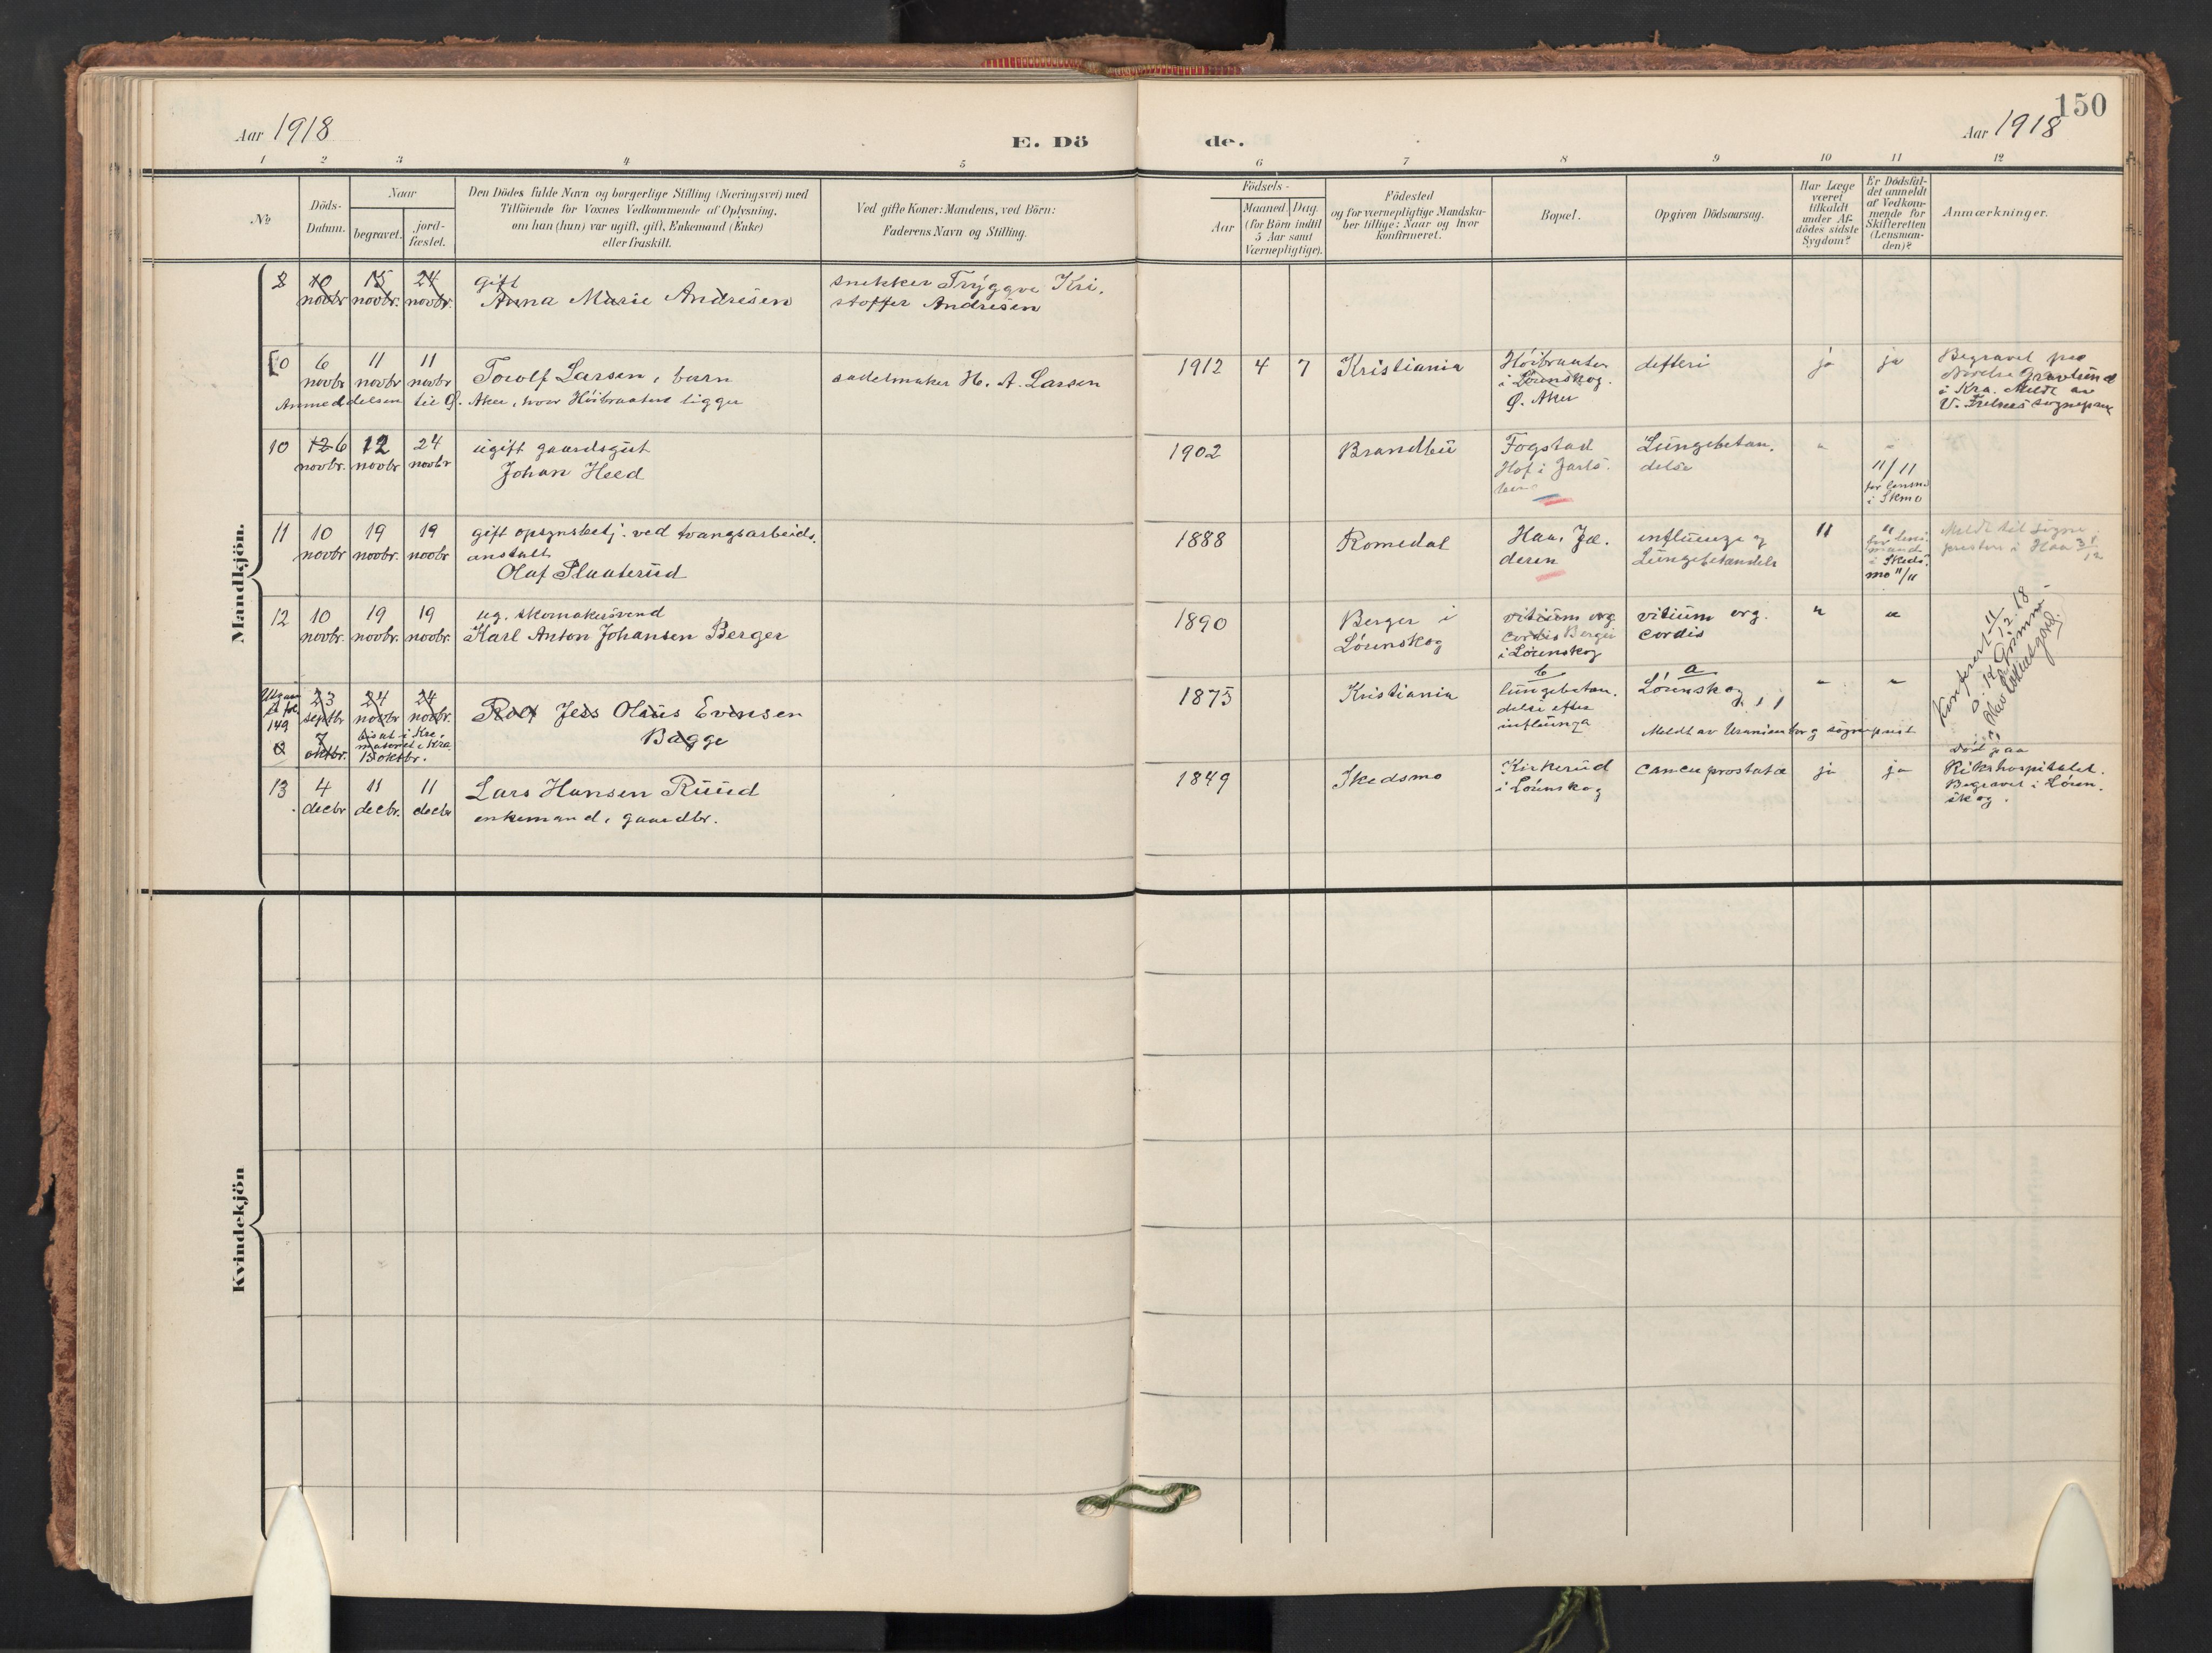 150
Aar 1918
E. Dö
de.
Aar 1918
1 2 3 4 5 6 7 8 9 10 11 12
No
Döds-
Datum.
Naar
begravet.
jord-
fæstet.
Den Dödes fulde Navn og borgerlige Stilling (Næringsvei) med
Tilföiende for Voxnes Vedkommende af Oplysning,
om han (hun) var ugift, gift, Enkemand (Enke)
eller fraskilt.
Ved gifte Koner: Mandens, ved Börn:
Faderens Navn og Stilling.
Födsels-
Aar
Maaned. Dag.
(for Börn indtil
5 Aar samt
Værnepligtige).
Födested
og for værnepligtige Mandska-
ber tillige: Naar og hvor
konfirmeret.
Bopæl.
Opgiven Dödsaarsag.
Har Læge
været
tilkaldt
under Af-
dödes sidste
Sygdom?
Er Dödsfal-
det anmeldt
af Vedkom-
mende for
Skifteretten
(Lensman-
den)?
Anmærkninger.
Mandkjön.
8
10
novbr
15
novbr.
24
novbr.
gift
Anna Marie Andresen
snekker Tryggve Kri-
stoffer Andresen
6
novbr
11
novbr
11
novbr
Torolf Larsen, barn
Anmeddelsen til Ø. Aker, hvor Höibraaten ligger
sadelmaker H. A. Larsen
1912 4 7
Kristiania
Höibraaten
i Lörenskog.
Ø. Aker
difteri
ja
ja
Begravet paa
Nordre Gravlund
i Kra. Meldt av
V. Frelsers sogneprest
10
12 6
novbr.
12
novbr
24
novbr
ugift gaardsgut
Johan Heed
1902
Brandbu
Fogstad
Hof i Jarls-
berg
Lungebetæn-
delse
"
"
11/11
for lensm.
i Skmo
11
10
novbr
19
novbr.
19
novbr
gift opsynsbetj. ved tvangsarbeids-
anstalt
Olaf Plaaterud
1888
Romedal
Haa, Jæ-
deren
influenza og
Lungebetændelse
"
"
for lens-
mand
i Skeds-
mo 11/11
Meldt til sogne-
presten i Haa 31/12
12
10
novbr.
19
novbr.
19
novbr.
ug. skomakersvend
Karl Anton Johansen Berger
1890
Berger i
Lörenskog
vitium org
cordis Berger
i Lörenskog
vitium org.
cordis
"
"
Konferert 11/12 18
149
23
septbr
7
oktbr.
24
novbr
24
novbr.
bisat i Kre-
matoriet i Kra
13 oktbr.
Rolf Jess Olaus Evensen
Bagge
1875
Kristiania
b
lungebetæn-
delse efter
influenza
a
Lörenskog
Meldt av Uranienborg sogneprest
"
"
13
4
decbr
11
decbr.
11
decbr
Lars Hansen Ruud
enkemand, gaardbr.
1849
Skedsmo
Kirkerud
i Lörenskog
cancer prostatæ
ja
ja
Död paa
Rikshospitalet.
Begravet i Lören-
skog.
Kvindekjön